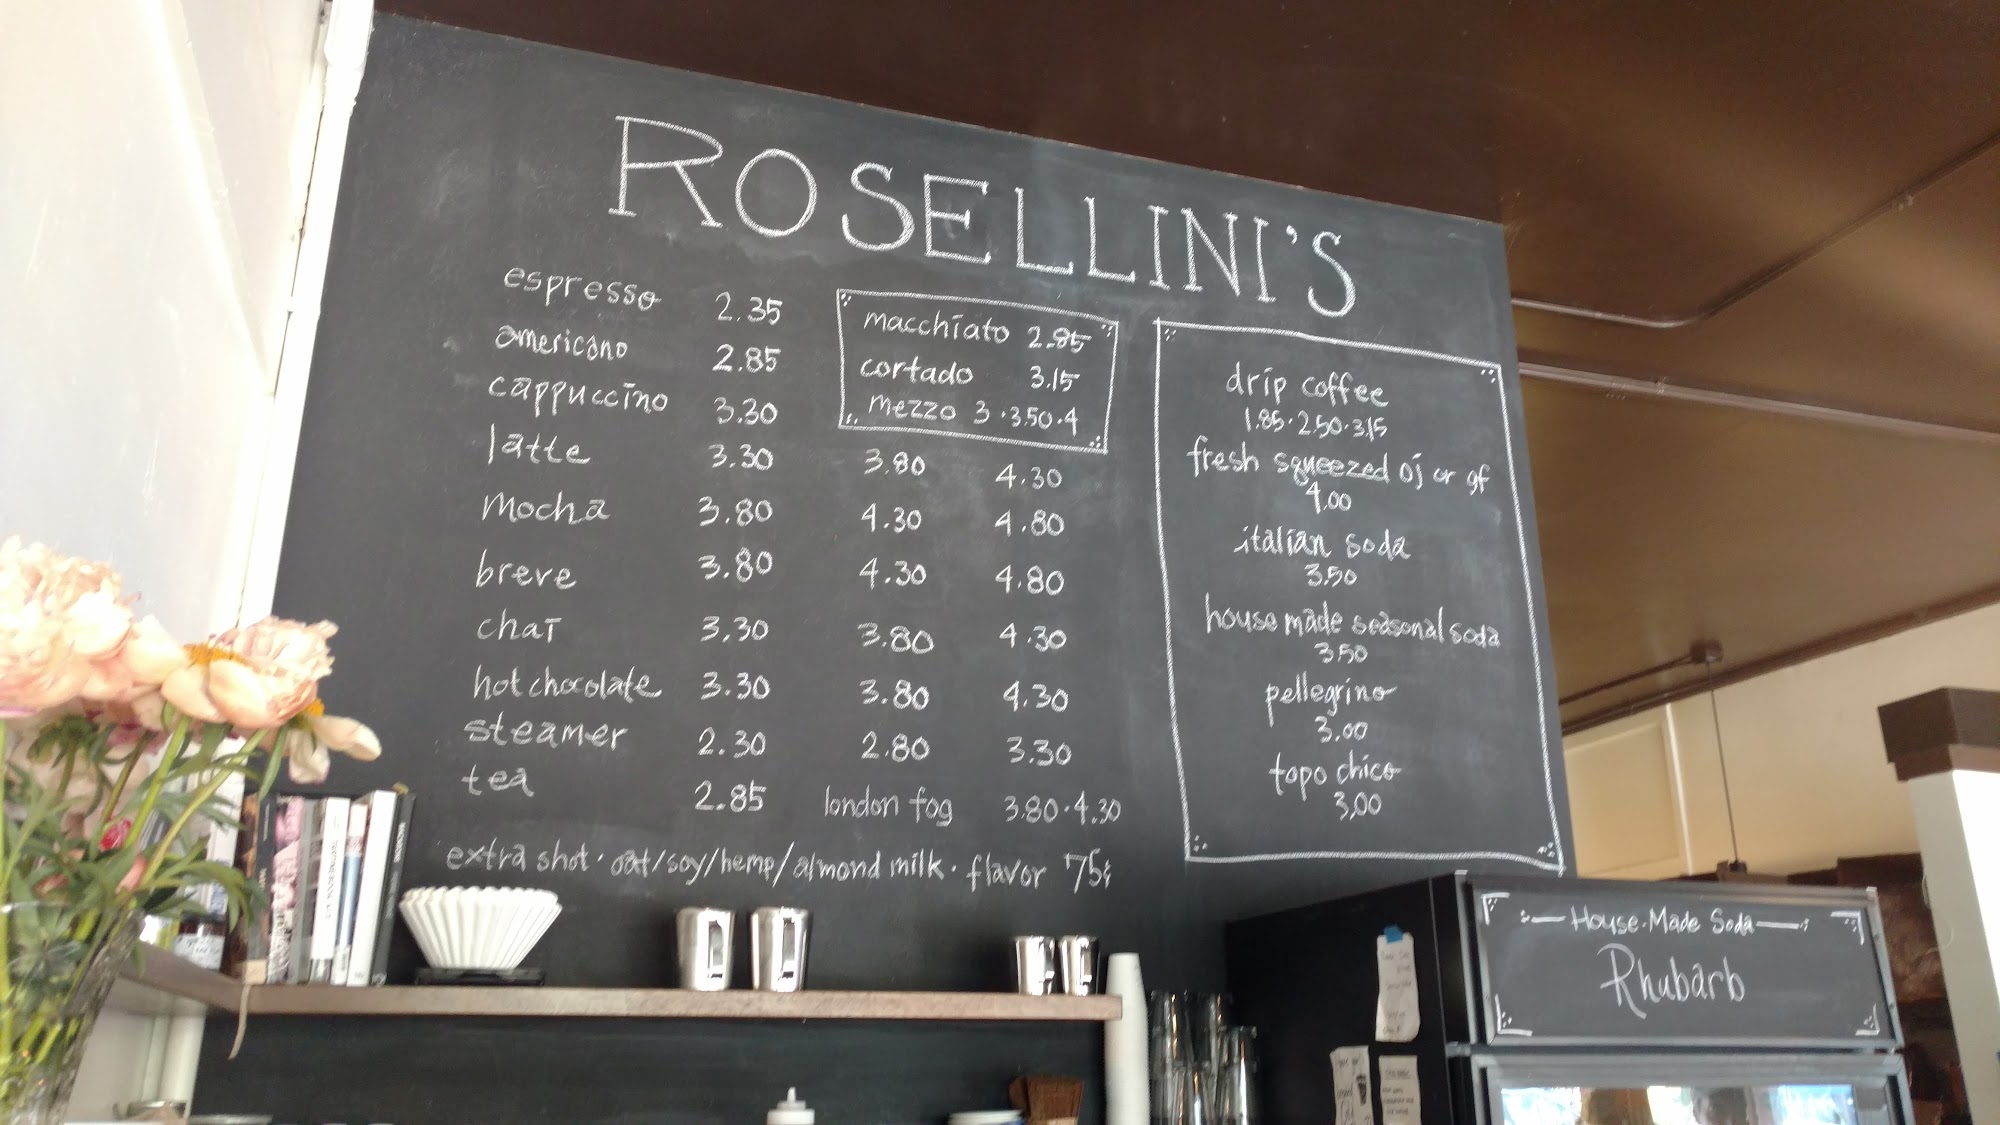 ROSELLINI'S
espresso 2.35
americano 2.85
cappuccino 3.30
latte 3.30 3.80 4.30
mocha 3.80 4.30 4.80
breve 3.80 4.30 4.80
chai 3.30 3.80 4.30
hot chocolate 3.30 3.80 4.30
steamer 2.30 2.80 3.30
tea 2.85 london fog 3.80 · 4.30
extra shot · oat/soy/hemp/almond milk · flavor 75¢
macchiato 2.85
cortado 3.15
mezzo 3 · 3.50 · 4
drip coffee
1.85 · 2.50 · 3.15
fresh squeezed oj or gf
4.00
italian soda
3.50
house made seasonal soda
3.50
pellegrino
3.00
topo chico
3.00
House-Made Soda
Rhubarb